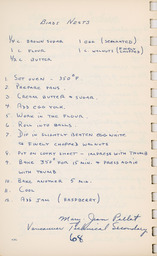 BIRDS NESTS
½ C. BROWN SUGAR 1 EGG (SEPARATED)
1 C. FLOUR 1 C. WALNUTS (FINELY CHOPPED)
½ C. BUTTER
1 SET OVEN - 350°F
2 PREPARE PANS
3 CREAM BUTTER & SUGAR.
4 ADD EGG YOLK.
5 WORK IN THE FLOUR
6 ROLL INTO BALLS
7 DIP IN SLIGHTLY BEATEN EGG WHITE
& FINELY CHOPPED WALNUTS
8 PUT ON COOKY SHEET - INDENTED WITH THUMB
9 BAKE 350° FOR 15 MIN. & PRESS AGAIN
WITH THUMB
10 BAKE ANOTHER 5 MIN.
11 COOL
12 ADD JAM (RASPBERRY)
Mary Jean
Vancouver Technical Secondary
68